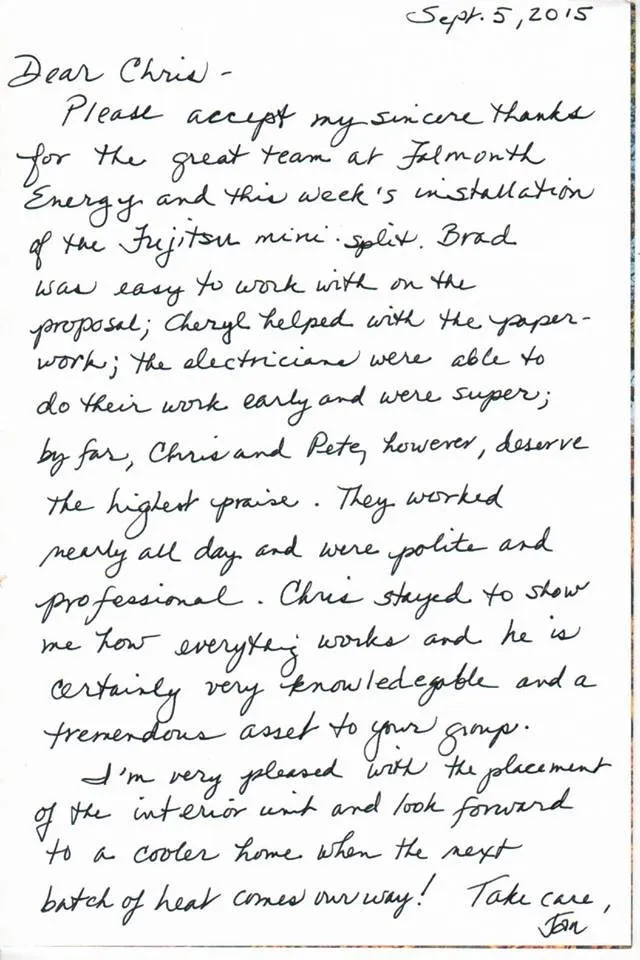 Sept. 5, 2015
Dear Chris -
Please accept my sincere thanks
for the great team at Falmouth
Energy and this week's installation
of the Fujitsu mini-split. Brad
was easy to work with on the
proposal; Cheryl helped with the paper-
work; the electricians were able to
do their work early and were super;
by far, Chris and Pete, however, deserve
the highest praise. They worked
nearly all day and were polite and
professional. Chris stayed to show
me how everything works and he is
certainly very knowledegable and a
tremendous asset to your group.
I'm very pleased with the placement
of the interior unit and look forward
to a cooler home when the next
batch of heat comes our way! Take care,